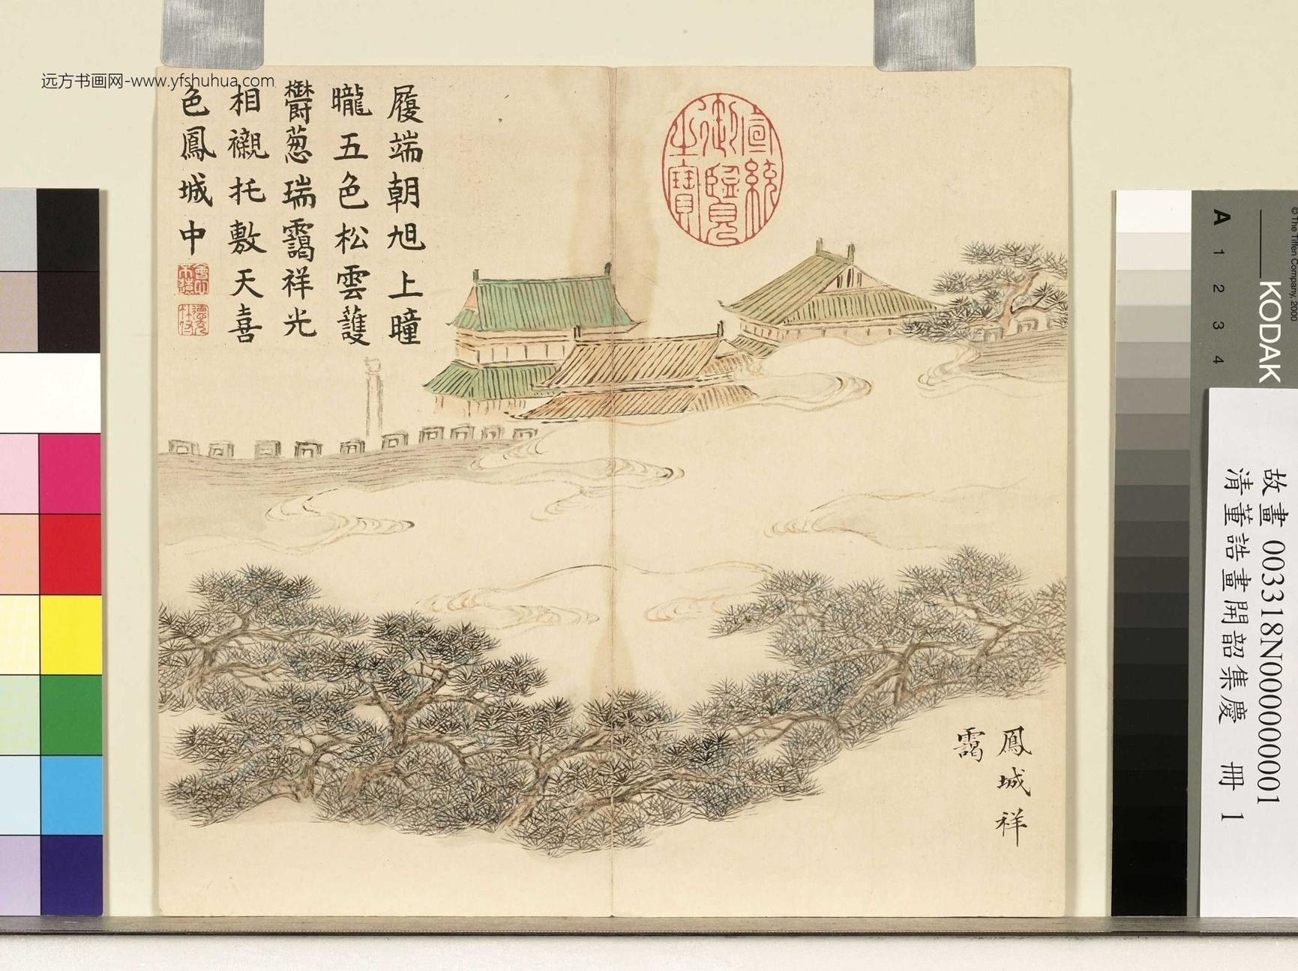 远方书画网-www.yfshuhua.com
履端朝旭上曈
曨五色松雲護
鬱蔥瑞靄祥光
相襯托敷天喜
色鳳城中
宣統
御覽
之寶
鳳城祥
靄
故畫 003318N000000001
清董誥畫開韶集慶 冊 1
KODAK
A 1 2 3 4
© The Tiffen Company, 2000